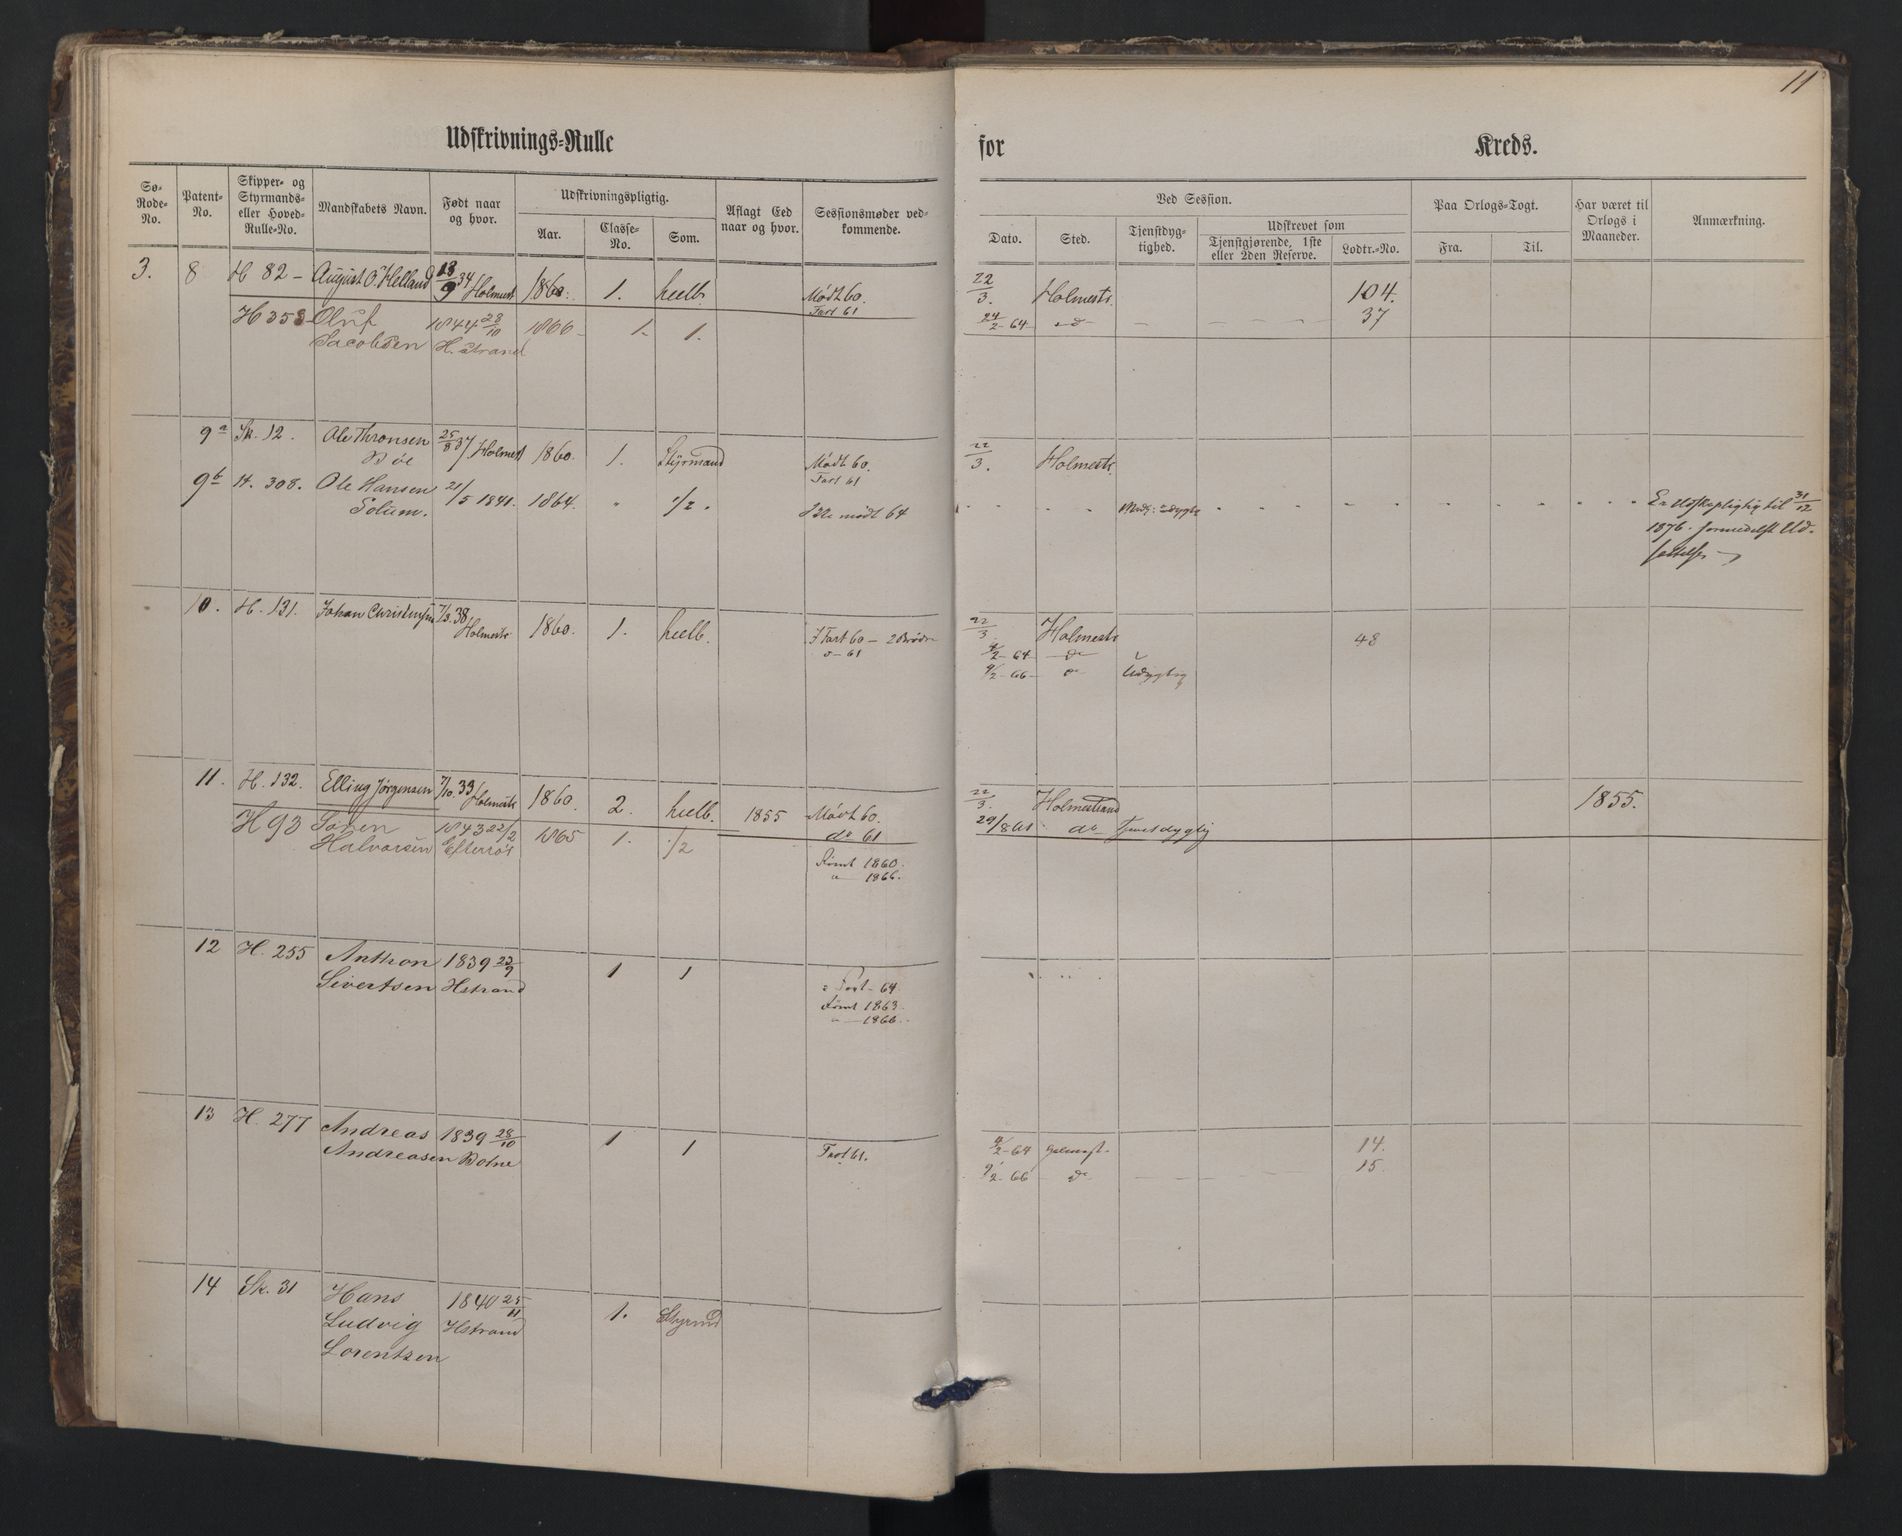 11
Udskrivnings-Rulle for Kreds.
Sø-Rode-No. Patent-No. Skipper- og Styrmands- eller Hoved-Rulle-No. Mandskabets Navn. Født naar og hvor. Udskrivningspligtig. Aar. Classe-No. Som. Aflagt Eed naar og hvor. Sessionsmøder vedkommende.
Ved Session. Dato. Sted. Tjenstdygtighed. Udskrevet som Tjenstgjørende, 1ste eller 2den Reserve. Lodtr.-No. Paa Orlogs-Togt. Fra. Til. Har været til Orlogs i Maaneder. Anmærkning.
3. 8 H 82 - August O. Helland 13/9 34 Holmest 1860. 1. heelb. Mødt 60. 22/3. Holmestr. 104.
Fart 61
H 353 Oluf 1844 28/10 1866 1. 1. 24/2-64 do 37
Jacobsen H.strand
9 a Sk. 12. Ole Thronsen 25/8 37 Holmest 1860. 1. Styrmand Mødt 60. 22/3. Holmestr.
Bøe Fart 61
9 b H. 308. Ole Hansen 21/5 1841. 1864. " 1/2. Ikke mødt 64 Er Udskpligtig til 31/12
Solum. 1876. formedelst Ud-
10. H. 131. Johan Christensen 7/3. 38 Holmestr 1860. 1. heelb. I Fart 60 - 2 Brødre 22/3. Holmestr 48
o - 61 4/2-64 do
9/2-66 do Udygtig
11. H. 132. Elling Jørgensen 7/10. 33 Holmestr 1860. 2. heelb. 1855 Mødt 60. 22/3. Holmestrand 1855.
do 61 29/8 61 do Tjenstdygtig
H 93 Søren 1843 22/2 1865 1. 1/2 Rømt 1860.
Halvorsen Efterrøs " 1866.
12 H. 255 Anthon 1839 23/9 1 1
Sivertsen Hstrand Fart - 64
Rømt 1863.
" - 1866.
13 H. 277 Andreas 1839 28/10 1 1 Fart 61. 4/2-64 Holmest. 14.
Andreasen Botne 9/2-66 do 15.
14 Sk. 31 Hans 1840 25/11 1. Styrmd
Ludvig Hstrand
Lorentzen